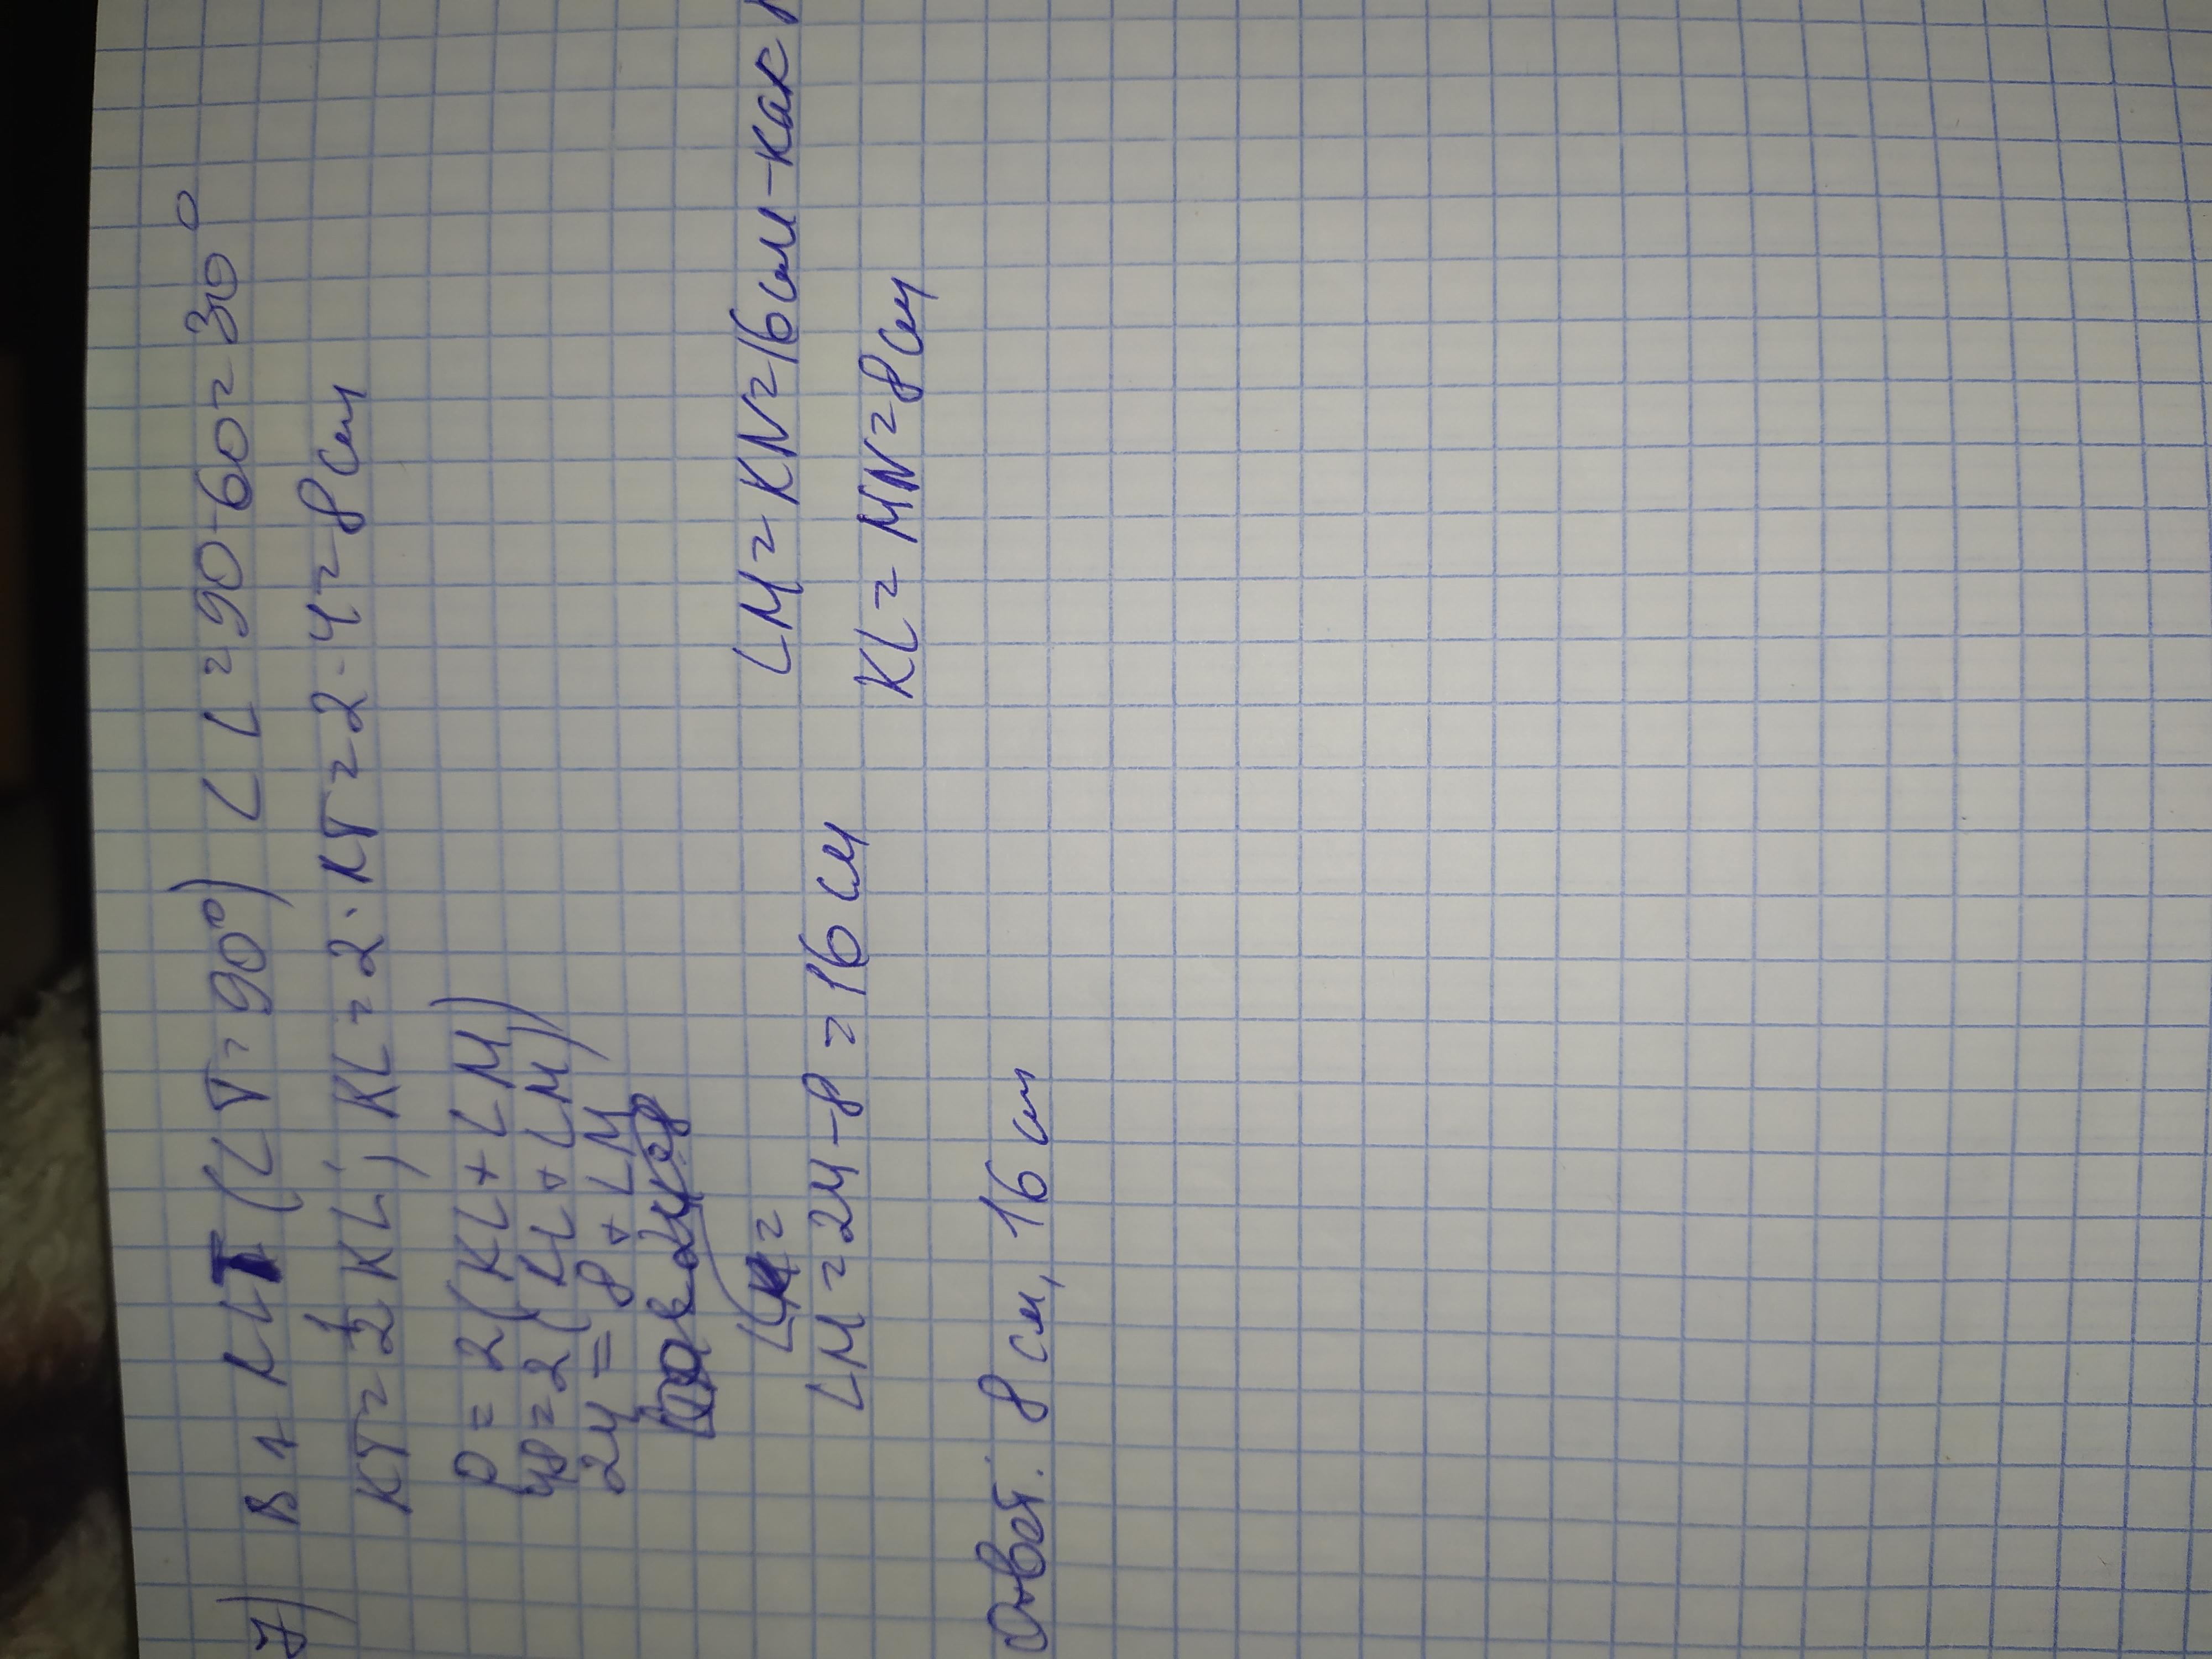 7) В Δ KLT (∠T=90°) ∠L=90-60=30°
KT=1/2 KL; KL=2·KT=2·4=8см
P=2(KL+LM)
48=2(KL+LM)
24=8+LM
LM=24-8=16см
LM=KN=16см-как
KL=MN=8см
Ответ: 8см, 16см